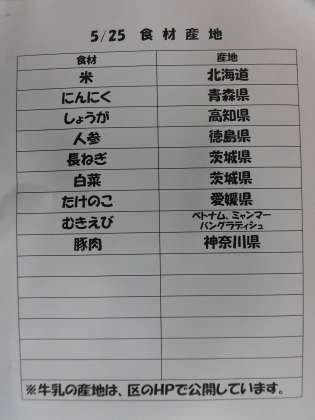 5/25 食材産地
食材 産地
米 北海道
にんにく 青森県
しょうが 高知県
人参 徳島県
長ねぎ 茨城県
白菜 茨城県
たけのこ 愛媛県
むきえび ベトナム、ミャンマー
バングラディシュ
豚肉 神奈川県
※牛乳の産地は、区のHPで公開しています。